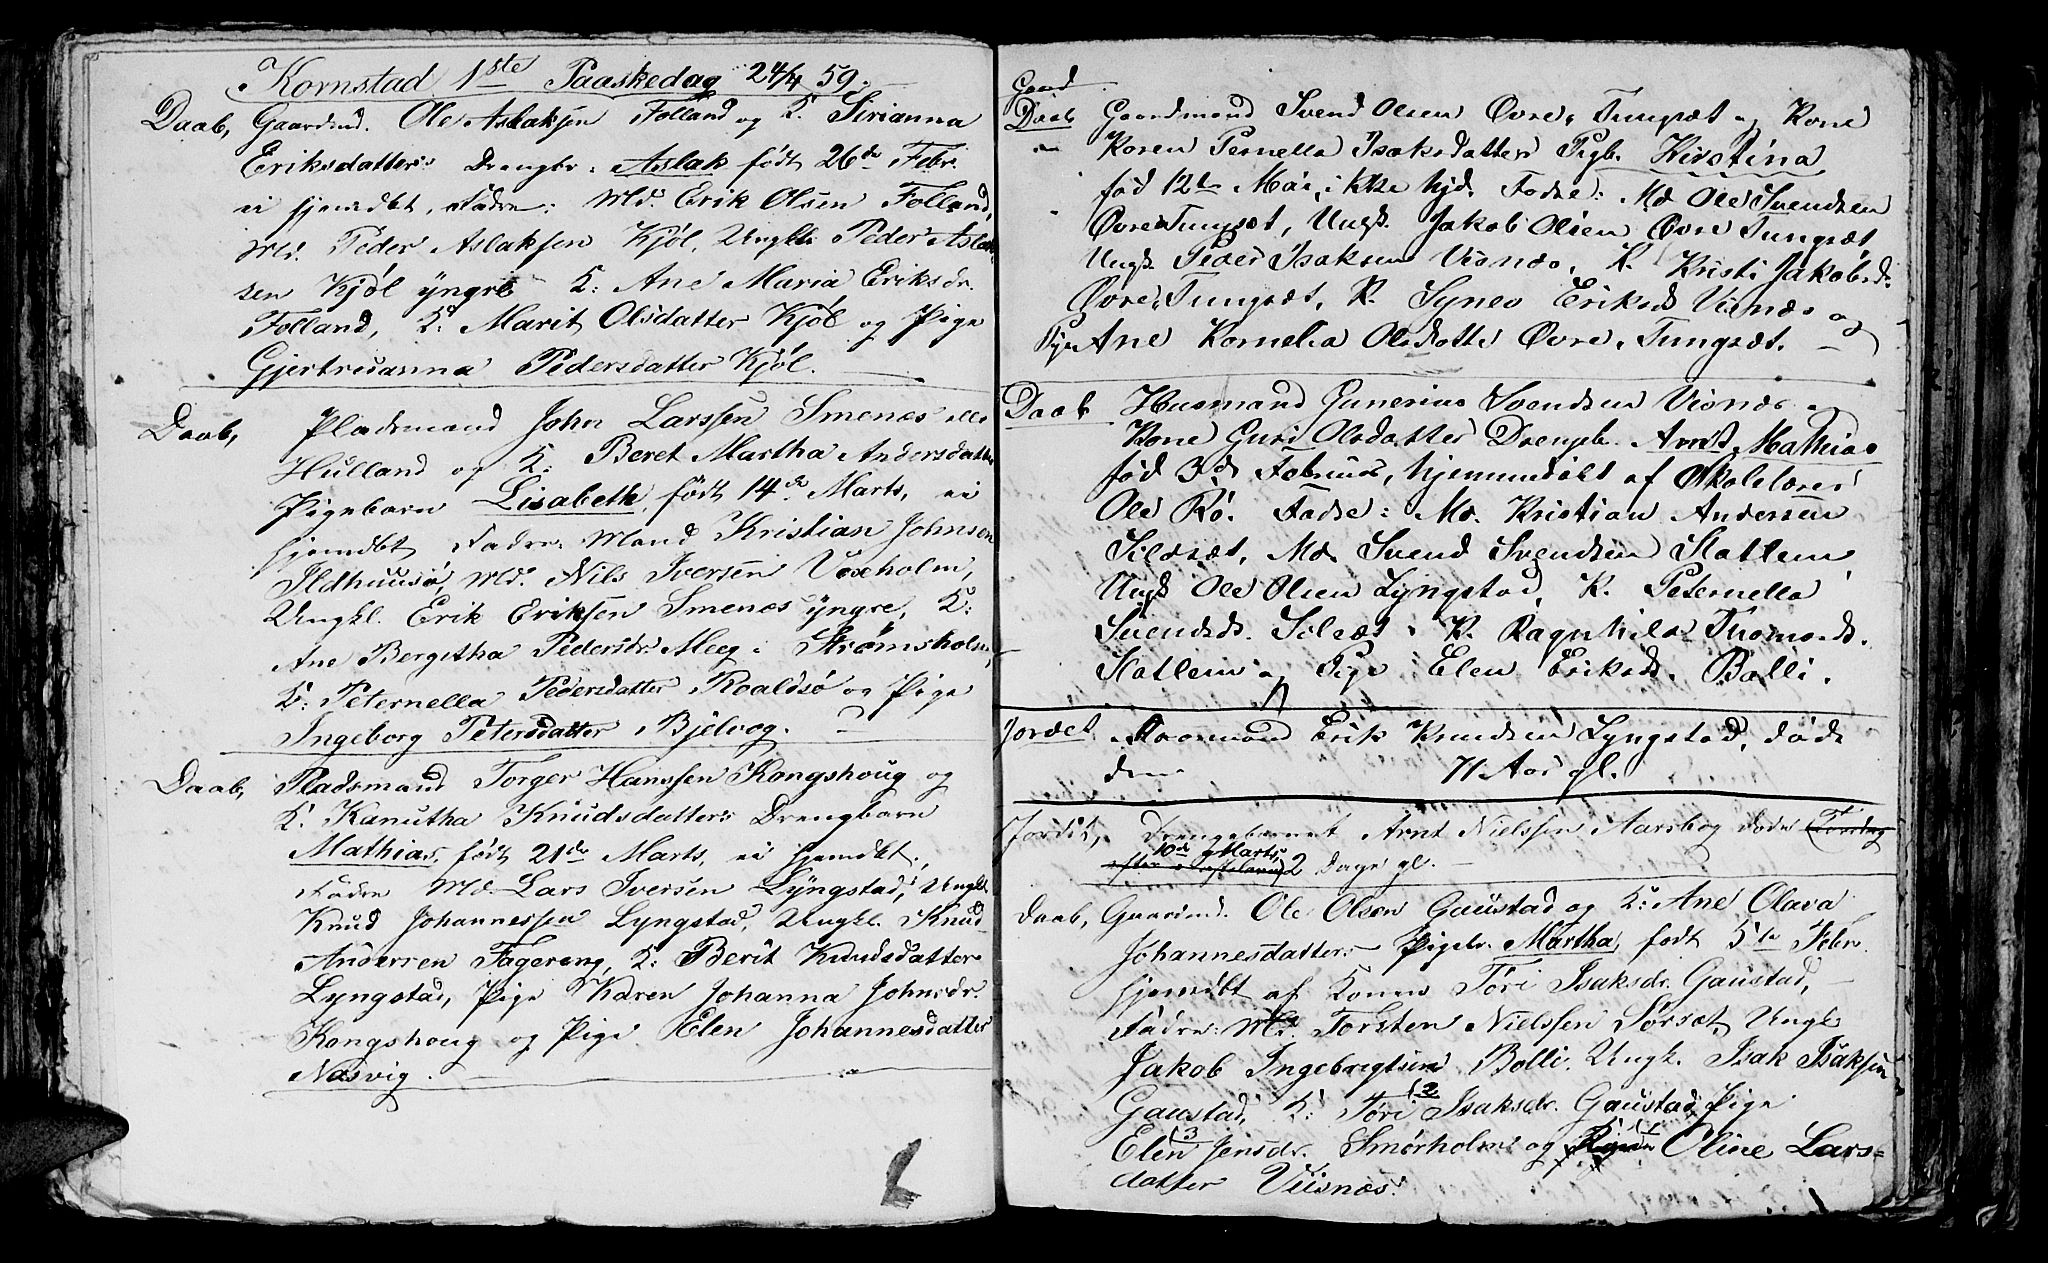 Kornstad 1ste Paaskedag 24/4 59.
Daab, Gaardmd. Ole Aslaksen Folland og K. Sirianna
Eriksdatters Drengbr. Aslak født 26de Febr.
ei hjemdbt, Fadre: Md. Erik Olsen Folland,
Md. Peder Aslaksen Kjøl, Ungkl. Peder Aslak
sen Kjøl yngre K: Ane Maria Eriksdr.
Folland, K. Marit Olsdatter Kjøl og Pige
Gjertruanna Pedersdatter Kjøl.
Daab, Pladsmand John Larssen Smenæs eller
Hulland og K: Beret Martha Andersdatters
Pigebarn Lisabeth, født 14de Marts, ei
hjemdbt Fadre: Mand Kristian Johnsen
Ildhuusø, Md. Nils Iversen Voxholm,
Ungkl. Erik Eriksen Smenæs yngre, K:
Ane Bergitha Pedersdr. Meeg Strømsholm,
K: Peternella Pedersdatter Roaldsø og Pige
Ingeborg Petersdatter Bjelvog.
Daab, Pladsmand Torger Hanssen Kongshoug og
K. Kanutha Knudsdatters Drengbarn
Mathias, født 21de Marts, ei hjemdbt.,
Fadre Md. Lars Iversen Lyngstad, Ungkl.
Knud Johannessen Lyngstad, Ungkl. Knud
Andersen Fagereng, K: Berit Knudsdatter
Lyngstad, Pige Karen Johanna Johnsdr.
Kongshoug og Pige Elen Johannesdatter
Næsvig.
Gaard
Daab Gaardmand Svend Olsen Øvre Tungsæt og Kone
Karen Pernella Isaksdatters Pigb. Kirstina
fød 12te Mai, ikke hjd. Fadre: Md Ole Svendsen
Øvre Tungsæt, Ungk. Jakob Olsen Øvre Tungsæt
Ungk. Peder Isaksen Visnæs, K. Kristi Jakobsd.
Øvre Tungsæt, K. Synev Eriksd Visnæs og
Pige Ane Kornelia Olsdatter Øvre Tungsæt.
Daab Husmand Junerius Svendsen Visnæs
Kone Guri Olsdatter Drengb. Arnt Mathias
fød 3de Februar, hjemmedøbt af Skolelærer
Ole Rø. Fadre: Md. Kristian Andersen
Silesæt, Md Svend Svendsen Hatlem
Ungk Ole Olsen Lyngstad, K. Peternella
Svendsd. Silsæt, K. Ragnhild Tromsd.
Hatlem og Pige Elen Eriksd. Bolli.
Jordet Kaarmand Erik Knudsen Lyngstad, døde
den 71 Aar gl.
Jordet, Drengebarnet Arnt Nielssen Aarsbog døde Torsdag
10de Marts,
efter 2 Dage gl.
Daab, Gaardmd. Ole Olsen Gaustad og K: Ane Olava
Johannesdatters Pigebr. Martha, født 5te Febr.
hjemdbt af Konen Tøri Isaksdr. Gaustad,
Fadre: Md. Torsten Nielssen Sørsæt, Ungk
Jakob Ingebrigtsen Bolli, Ungk. Isak Isaksen
Gaustad, K: Tøri Isaksdr. Gaustad, Pige
Elen Jensdr. Smørholm og Oline Lars-
datter Viisnæs.